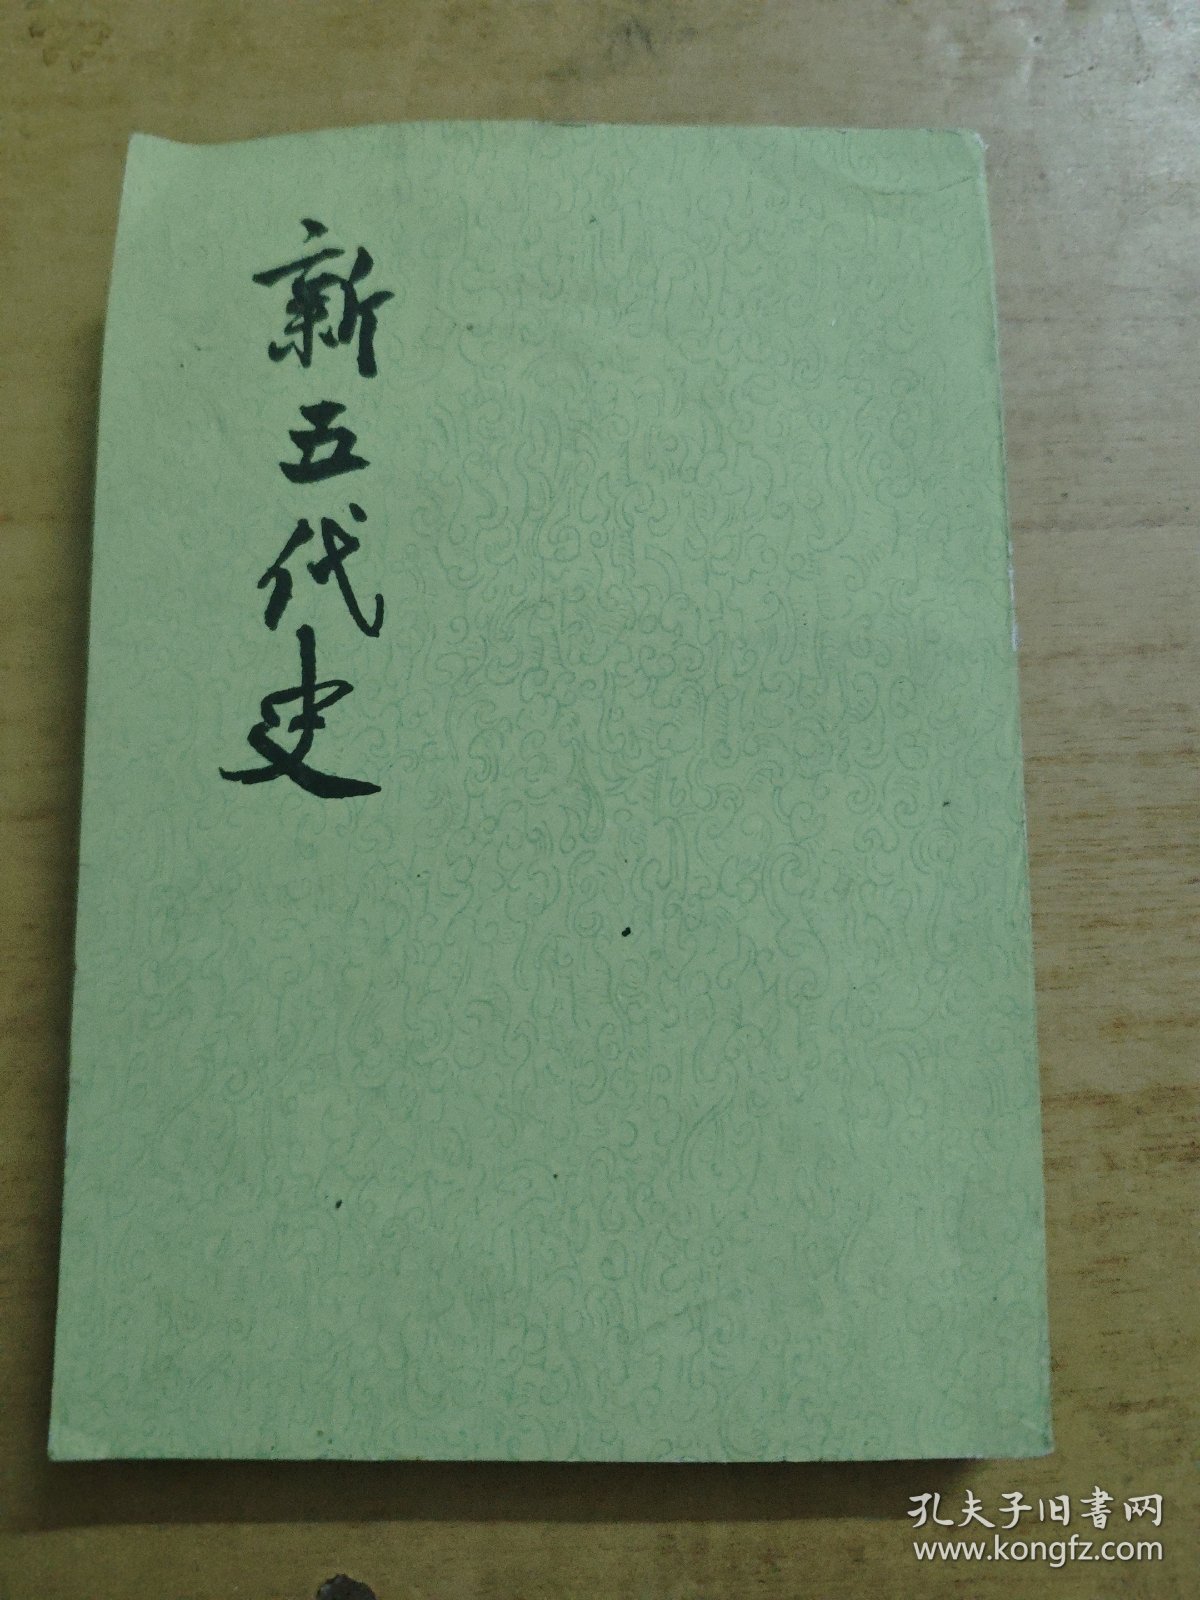 新五代史
孔夫子旧書网
www.kongfz.com